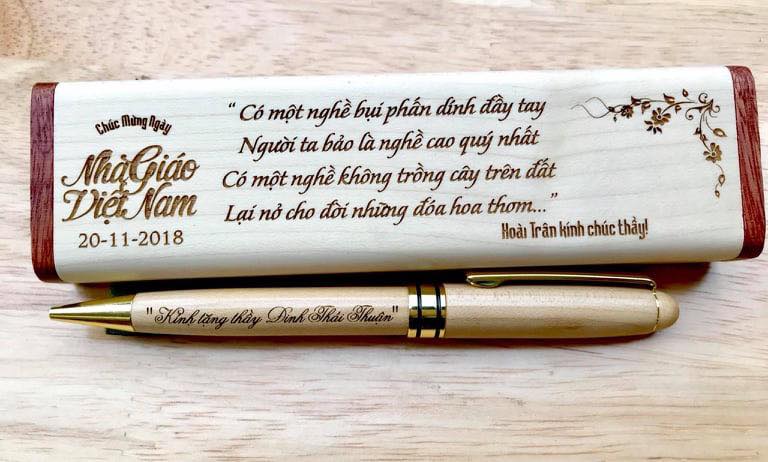 Chúc Mừng Ngày
Nhà Giáo
Việt Nam
20-11-2018
“ Có một nghề bụi phấn dính đầy tay
Người ta bảo là nghề cao quý nhất
Có một nghề không trồng cây trên đất
Lại nở cho đời những đóa hoa thơm...”
Hoài Trân kính chúc thầy!
"Kính tặng thầy Đinh Thái Thuận"